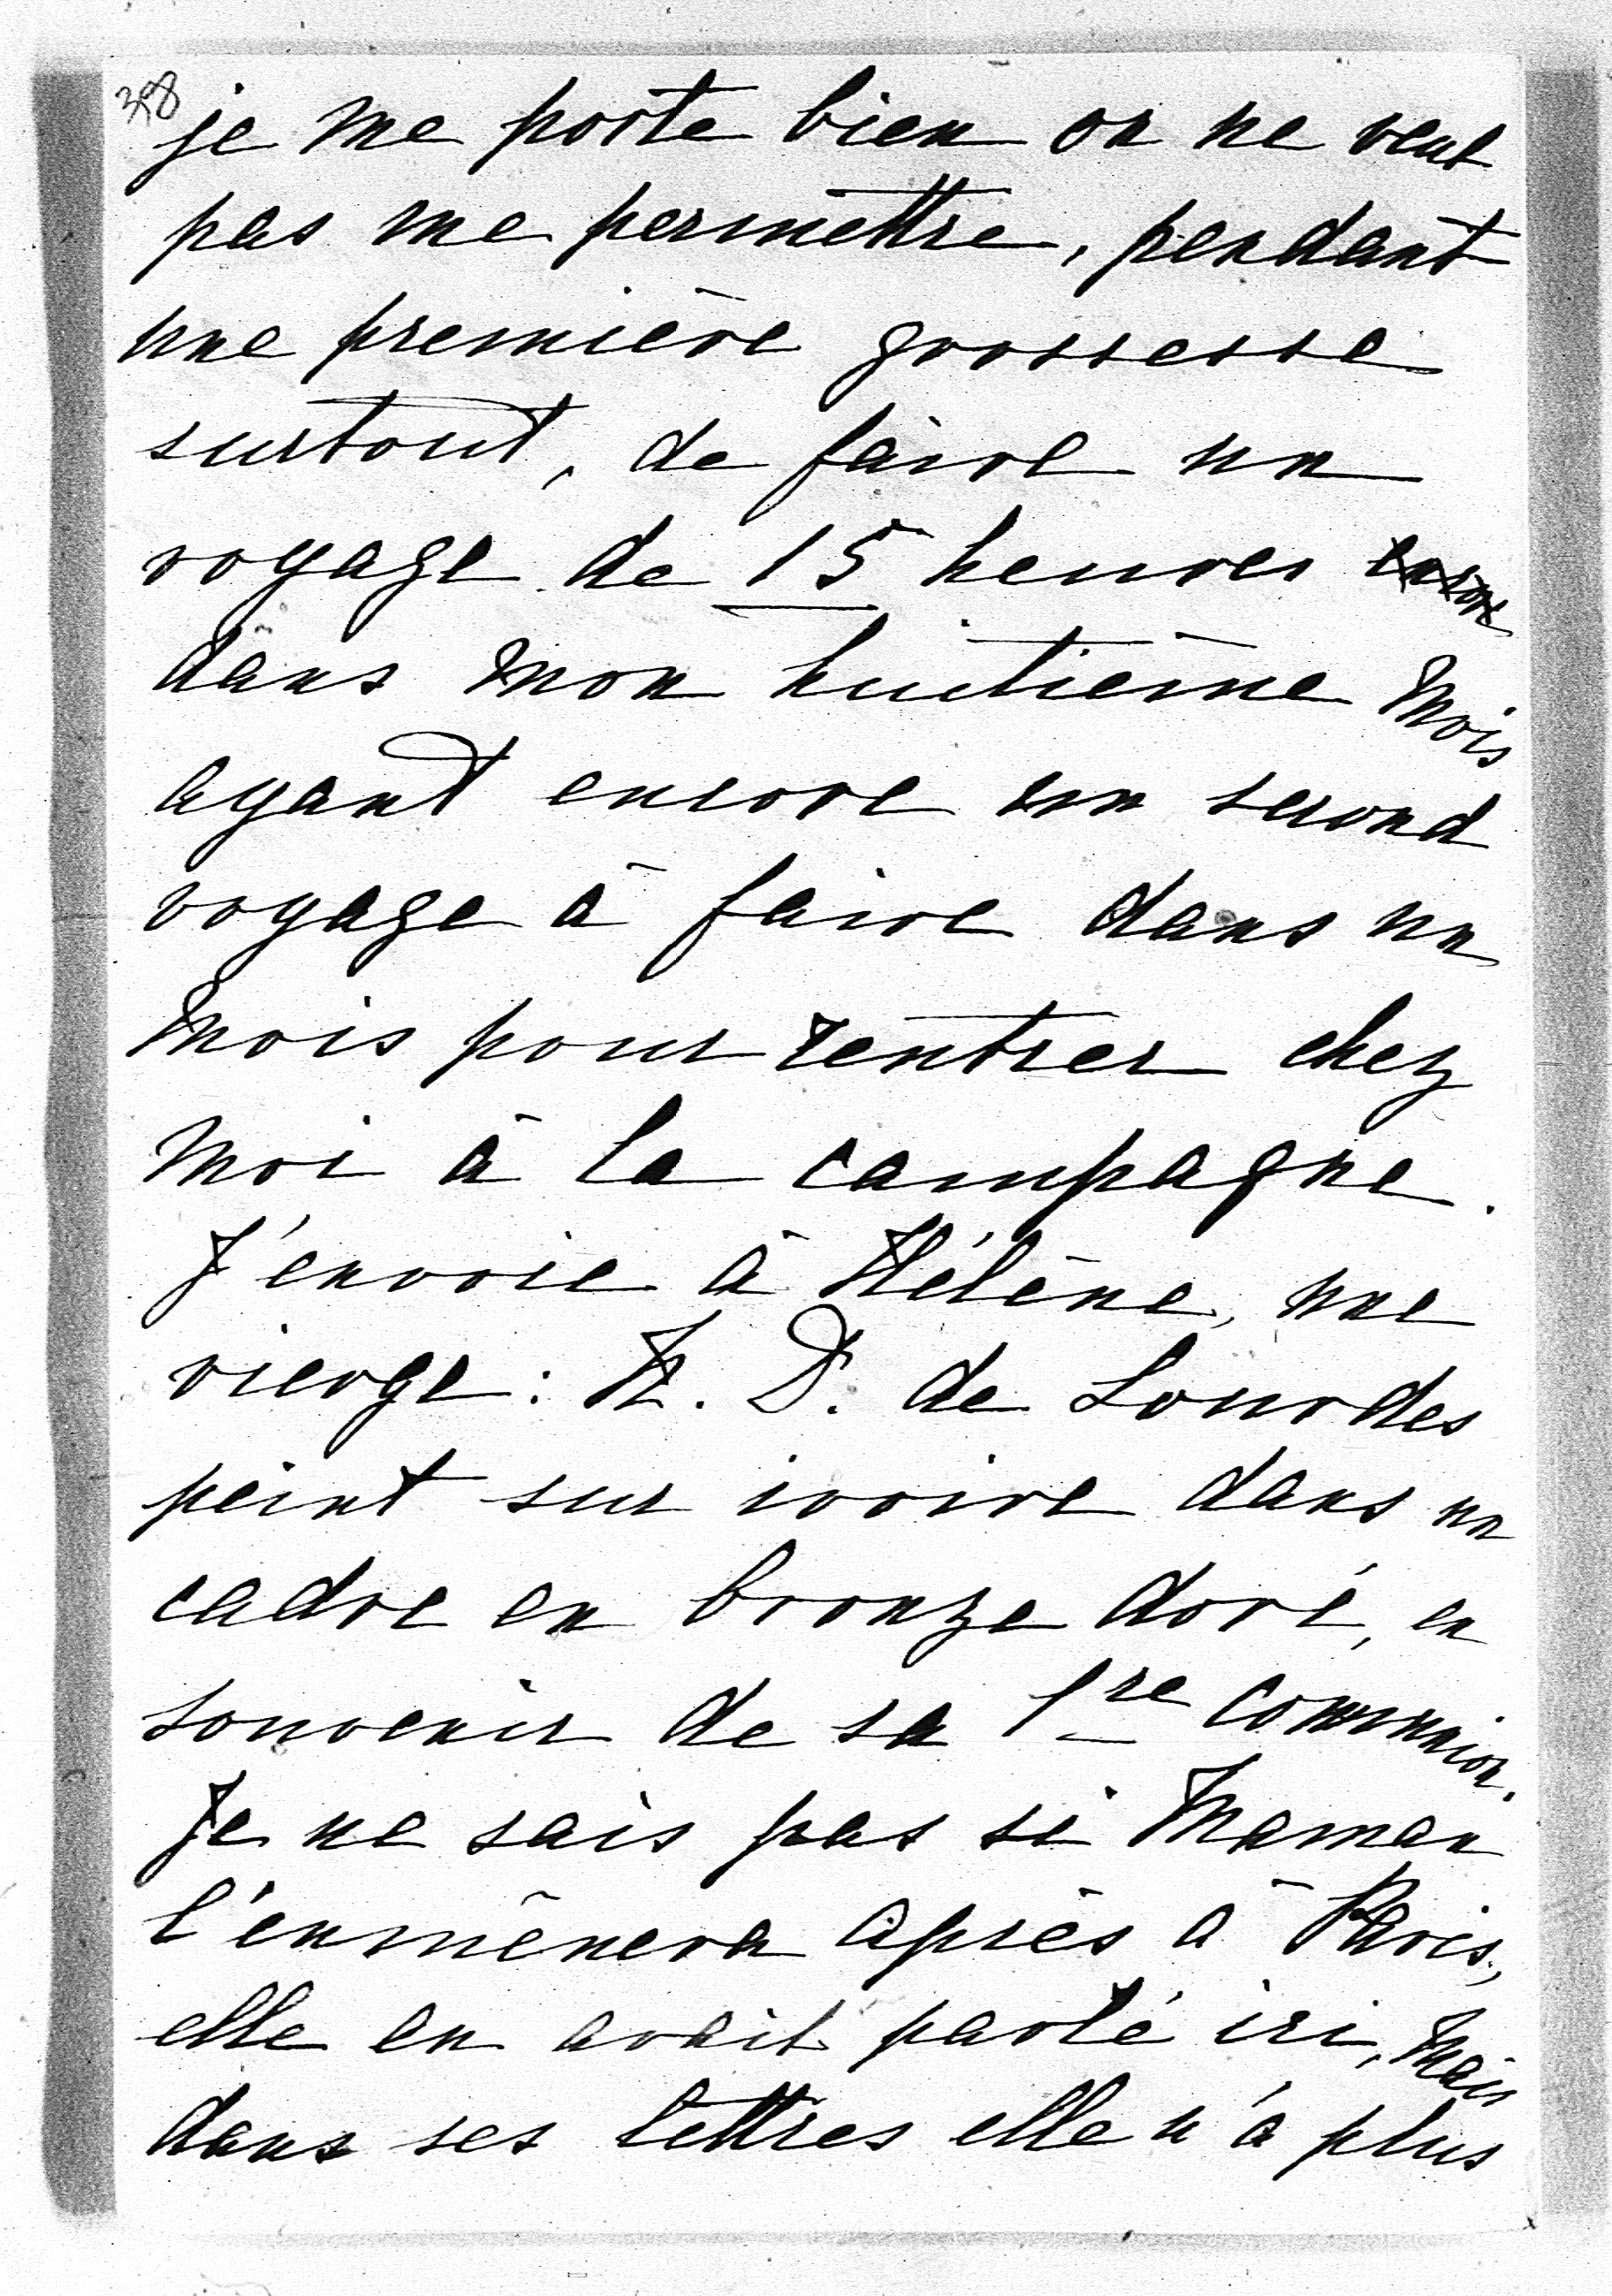 je me porte bien on ne veut
pas me permettre, pendant
une première grossesse
surtout, de faire un
voyage de 15 heures encore
dans mon huitième mois
ayant encore un second
voyage à faire dans un
mois pour rentrer chez
moi à la campagne.
J'envoie à Hélène, une
vierge : N. D. de Lourdes
peint sur ivoire dans un
cadre en bronze doré, en
souvenir de sa 1re communion.
Je ne sais pas si Maman
l'enmènera après à Paris,
elle en avait parlé ici, mais
dans ses lettres elle n'a plus